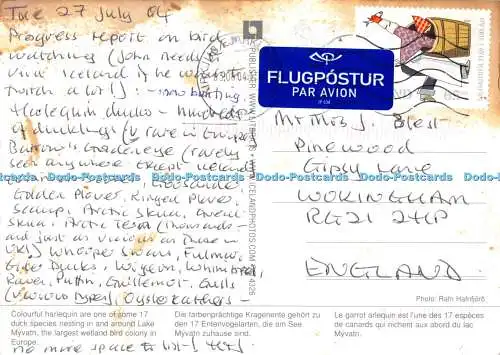 Tue 27 July 04
Progress report on bird
watching (John needs
visit Iceland if he wants to
twitch a lot!) :-
Harlequin ducks - hundreds
of ducklings (v rare in Europe)
Barrow's Goldeneye (rarely
seen anywhere except Iceland
Goosander
Golden Plover, Ringed Plover
Scaup, Arctic Skua, Great
Skua, Arctic Tern (thousands -
and just as vicious as those in
UK!) Whooper Swans, Fulmar,
Eider Ducks, Wigeon, Whimbrel,
Raven, Puffin, Guillemot, Gulls
(various types), Oystercatchers -
no more space to list!
FLUGPÓSTUR
PAR AVION
Mr & Mrs J. Blest
Pinewood
Gipsy Lane
WOKINGHAM
RG21 2HP
ENGLAND
Photo: Rafn Hafnfjörð
Colourful harlequin are one of some 17
duck species nesting in and around Lake
Mývatn, the largest wetland bird colony in
Europe.
Die farbenprächtige Kragenente gehört zu
den 17 Entenvogelarten, die am See
Mývatn zuhause sind.
Le garrot arlequin est l'une des 17 espèces
de canards qui nichent aux abord du lac
Mývatn.
Dodo-Postcards Dodo-Postcards Dodo-Postcards Dodo-Postcards